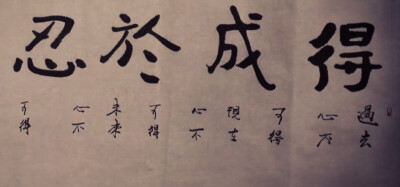 得成於忍
過去
心不
可得
現在
心不
可得
未來
心不
可得